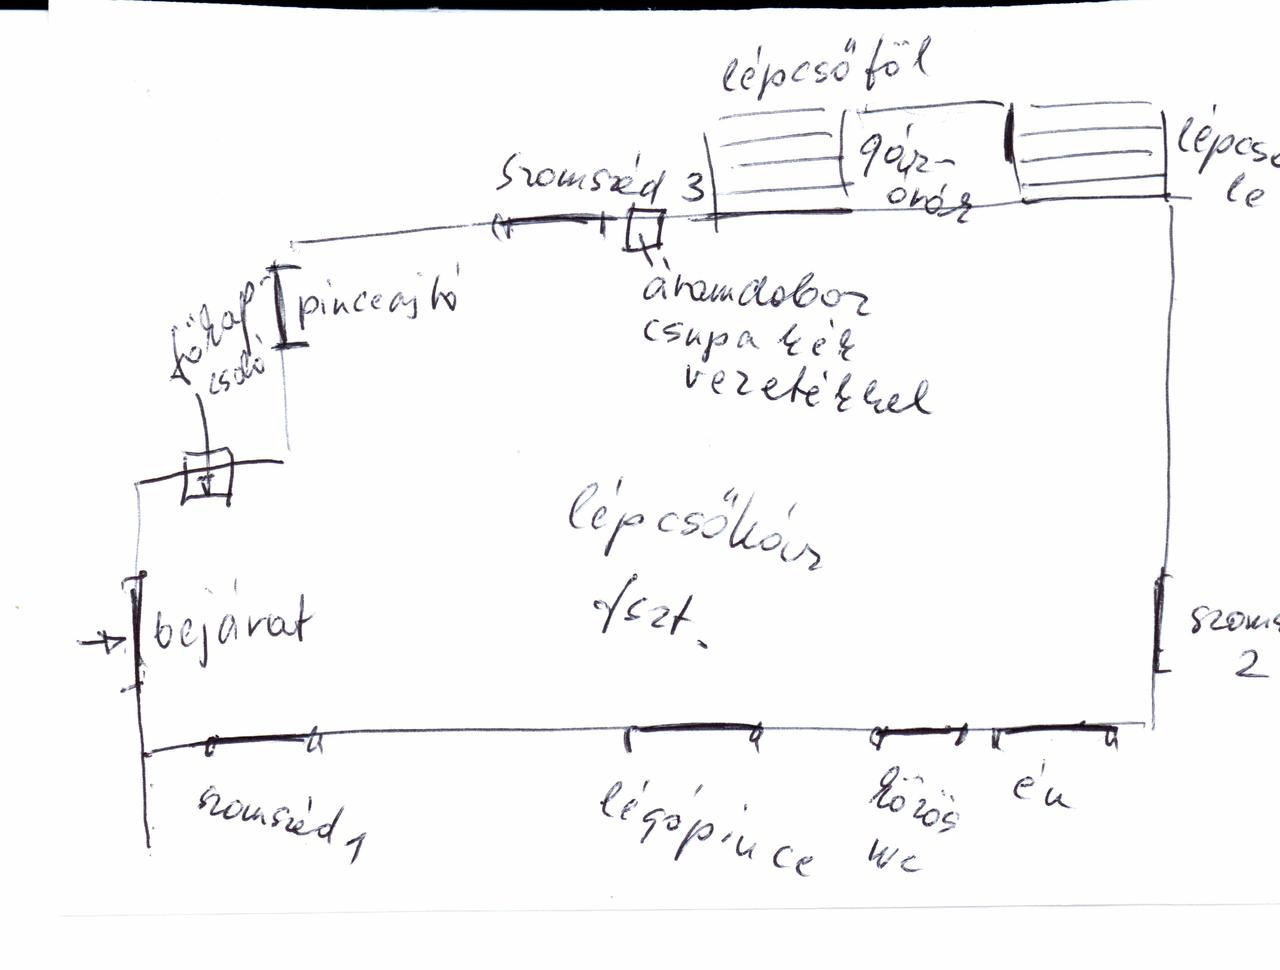 lépcső föl
lépcső
le
gáz-
órák
szomszéd 3
áramdoboz
csupa kék
vezetékkel
pinceajtó
főkap
csoló
lépcsőház
fszt.
bejárat
szoms
2
szomszéd 1
légópince
közös
wc
én